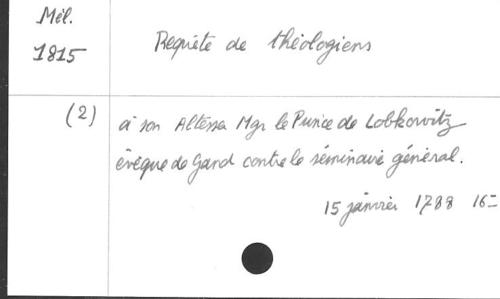 Mél.
1815
Requête de théologiens
(2)
à son Altesse Mgr le Prince de Lobkowitz
évêque de Gand contre le séminaire général.
15 janvier 1788 16=